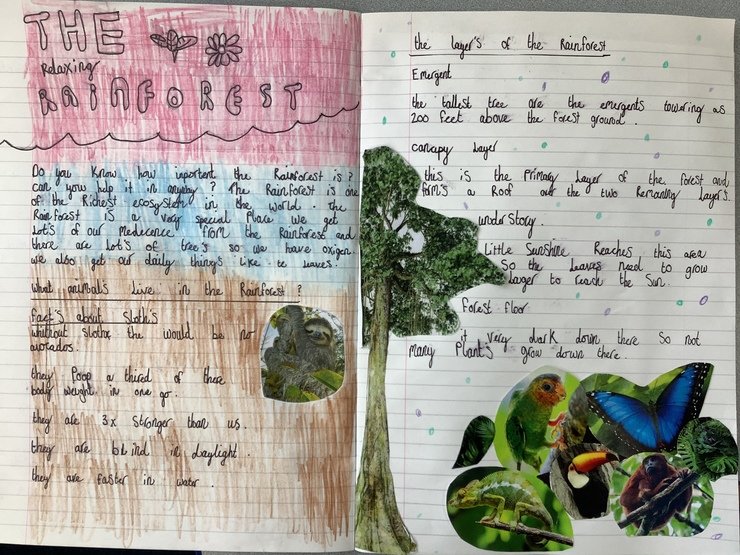 THE
Relaxing
RAINFOREST
Do you know how inportent the Rainforest is ?
can you help it in anyway ? The Rainforest is one
of the Richest ecosystem in the world . the
Rain forest is a very special Place we get
Lot's of our Medecence from the Rainforest and
there are Lot's of tree's so we have oxigen.
we also get our daily thing's like te leaves.
what animals Live in the Rainforest ?
fact's about Sloth's
whithout slothx the would be no
avocados.
they Poop a thired of there
body weight in one go.
they are 3x stronger than us.
they are blind in daylight.
they are faster in water.
the layer's of the Rainforest
Emergent
the tallest tree are the emergents towering as
200 feet above the forest ground.
canapy Layer
this is the Primary Layer of the forest and
form's a Roof over the two Remaning Layer's.
under Story.
Little Sunshine Reaches this area
So the Leaves need to grow
Lager to reach the Sun.
Forest floor
it very dark down there So not
Many Plant's grow down there.